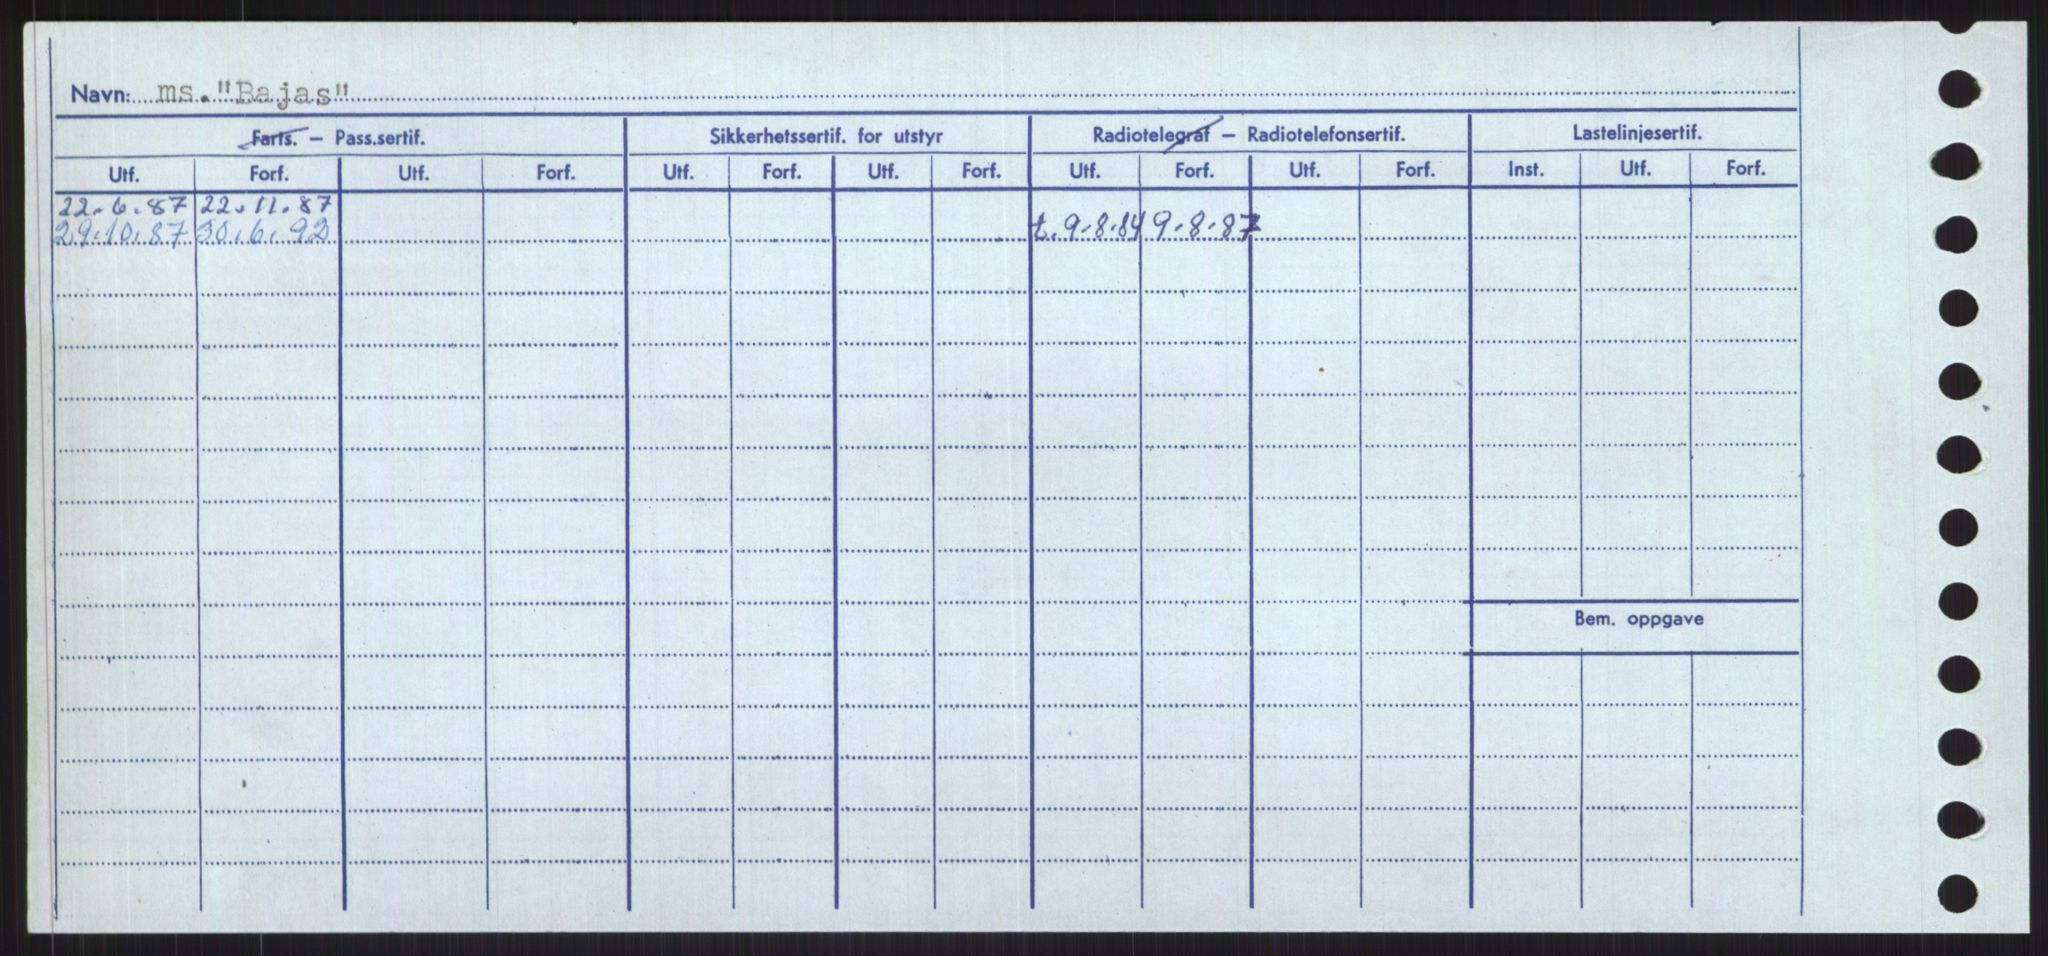 Navn: ms."Bajas"
Farts. – Pass.sertif. Sikkerhetssertif. for utstyr Radiotelegraf – Radiotelefonsertif. Lastelinjesertif.
Utf. Forf. Utf. Forf. Utf. Forf. Utf. Forf. Utf. Forf. Utf. Forf. Inst. Utf. Forf.
22.6.87 22.11.87
29.10.87 30.6.92 t. 9.8.84 9.8.87
Bem. oppgave